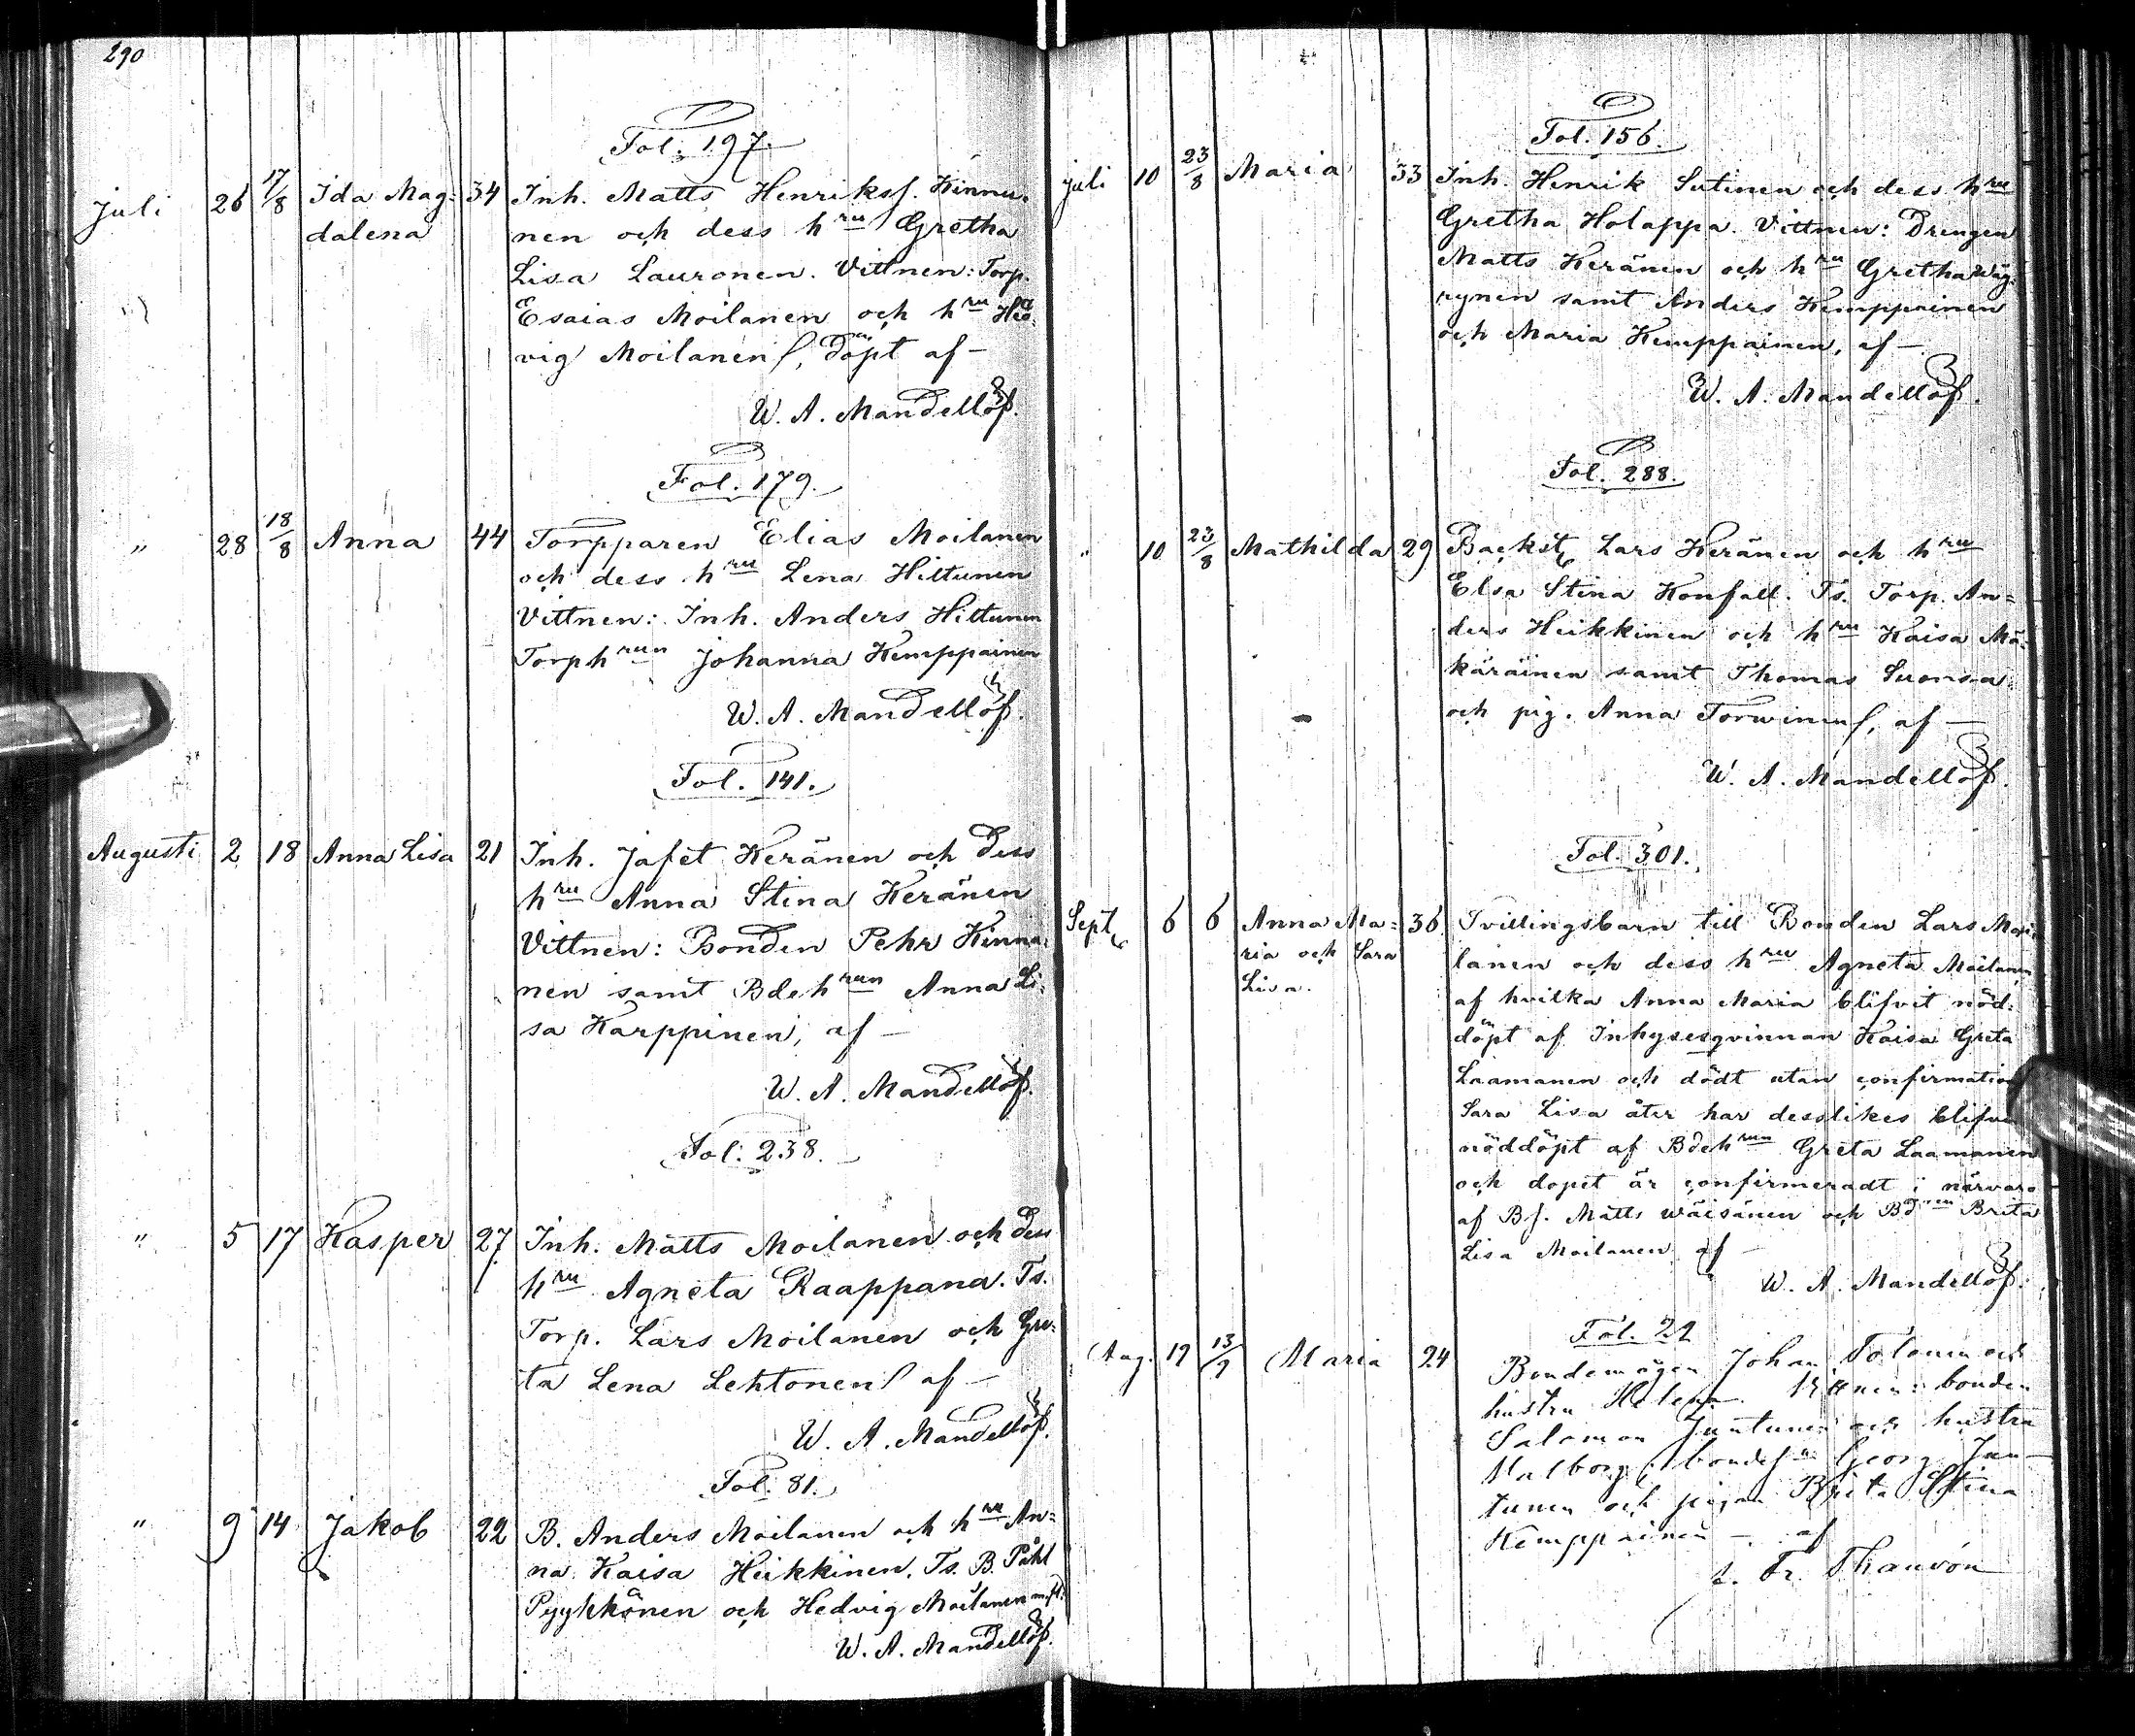 290
Fol. 197.
Juli 26 17/8 Ida Mag= 34 Inh. Matts Henrikss. Kinnu-
dalena nen och dess hru Gretha
Lisa Lauronen. Vittnen: Torp.
Esaias Moilanen och hru Hed-
vig Moilanen, döpt af —
W. A. Mandellöf.
Fol. 179.
" 28 18/8 Anna 44 Torpparen Elias Moilanen
och dess hru Lena Hiltunen
Vittnen: Inh. Anders Hiltunen
Torphrun Johanna Kemppainen
W. A. Mandellöf.
Fol. 141.
Augusti 2 18 Anna Lisa 21 Inh. Jafet Keränen och dess
hru Anna Stina Keränen
Vittnen: Bonden Pehr Kinnu-
nen samt Bdehrun Anna Li-
sa Karppinen, af —
W. A. Mandellöf.
Fol. 238.
" 5 17 Kasper 27 Inh. Matts Moilanen och dess
hru Agneta Raappana. Ts.
Torp. Lars Moilanen och Gre-
ta Lena Lehtonen af —
W. A. Mandellöf.
Fol. 81.
" 9 14 Jakob 22 B. Anders Moilanen och hru An=
na Kaisa Heikkinen. Ts. B. Påhl
Pyykkönen och Hedvig Moilanen
W. A. Mandellöf.
Fol. 156.
Juli 10 23/8 Maria 33 Inh. Henrik Sutinen och dess hru
Gretha Holappa. Vittnen: Drengen
Matts Keränen och hru Gretha Väy-
rynen samt Anders Kemppainen
och Maria Kemppainen, af —
W. A. Mandellöf.
Fol. 288.
" 10 23/8 Mathilda 29 Backst. Lars Keränen och hru
Elsa Stina Konfall. Ts. Torp. An=
ders Heikkinen och hru Kaisa Mä-
käräinen samt Thomas Suonsa
och pig. Anna Torwinen, af —
W. A. Mandellöf.
Fol. 301.
Sept. 6 6 Anna Ma= 36 Tvillingsbarn till Bonden Lars Moi-
ria och Sara lanen och dess hru Agneta Moilanen,
Lisa. af hvilka Anna Maria blifvit nöd-
döpt af Inhysesqvinnan Kaisa Greta
Laamanen och dödt utan confirmation
Sara Lisa åter har desslikes blifvit
nöddöpt af Bdehrun Greta Laamanen
och dopet är confirmeradt i närvaro
af Bs. Matts Wäisänen och Brita
Lisa Moilanen af —
W. A. Mandellöf.
Fol. 22
Aug. 19 13/9 Maria 24 Bondemågen Johan Tolonen och
hustru Helena. Vittnen: bonden
Salomon Juntunen och hustru
Valborg, bondes. Georg Jun-
tunen och pigan Brita Stina
Kemppainen — af
Fr. Thauvón